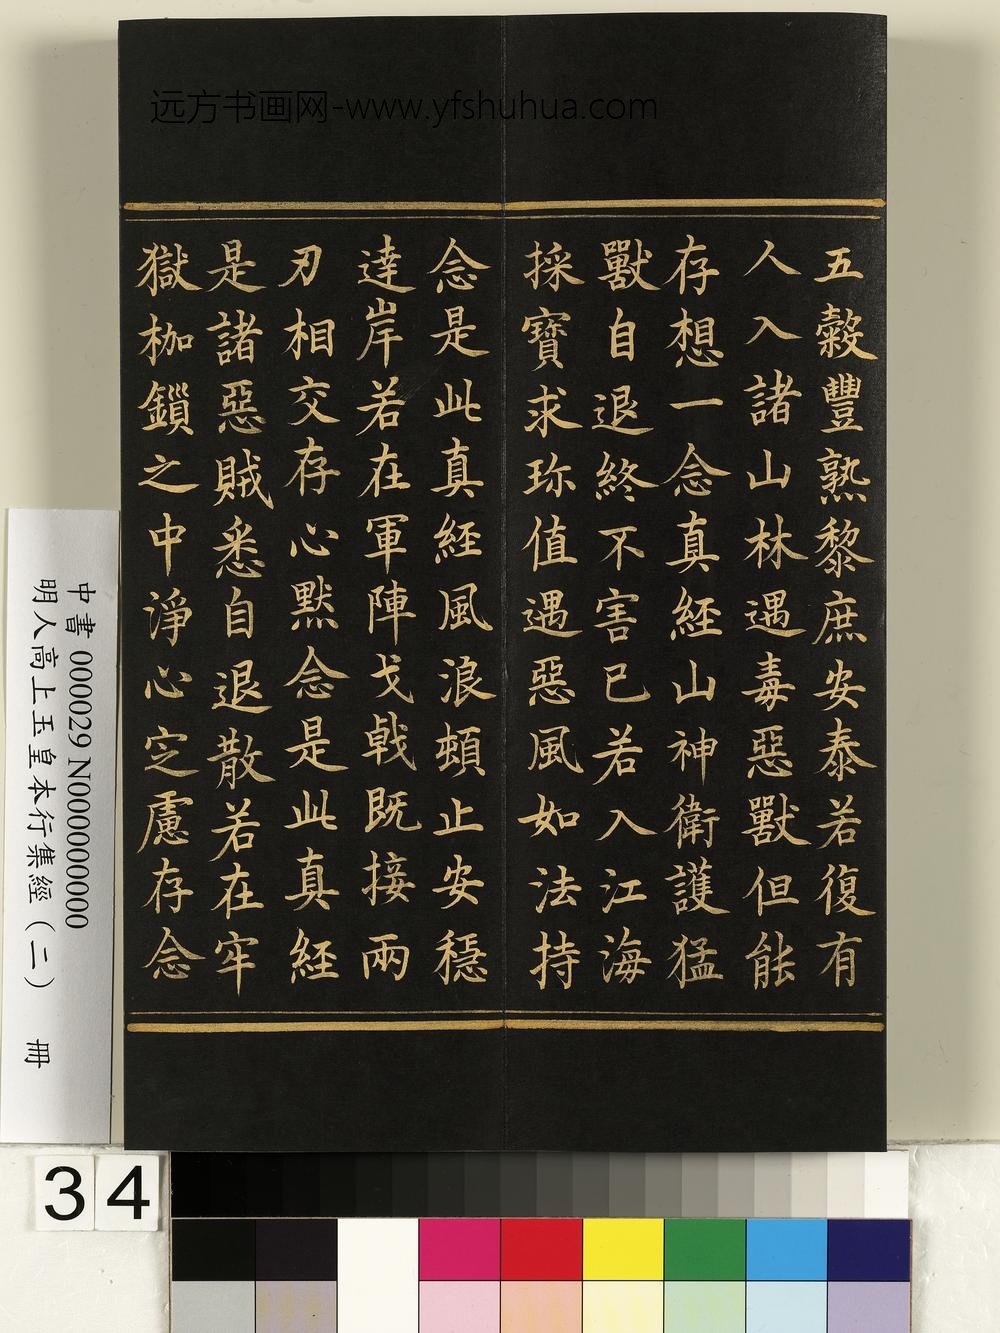 远方书画网-www.yfshuhua.com
五穀豐熟黎庶安泰若復有
人入諸山林遇毒惡獸但能
存想一念真經山神衛護猛
獸自退終不害已若入江海
採寶求珎值遇惡風如法持
念是此真經風浪頓止安穩
達岸若在軍陣戈戟既接兩
刃相交存心默念是此真經
是諸惡賊悉自退散若在牢
獄枷鎖之中淨心定慮存念
中書 000029 N000000000
明人高上玉皇本行集經（二） 冊
34